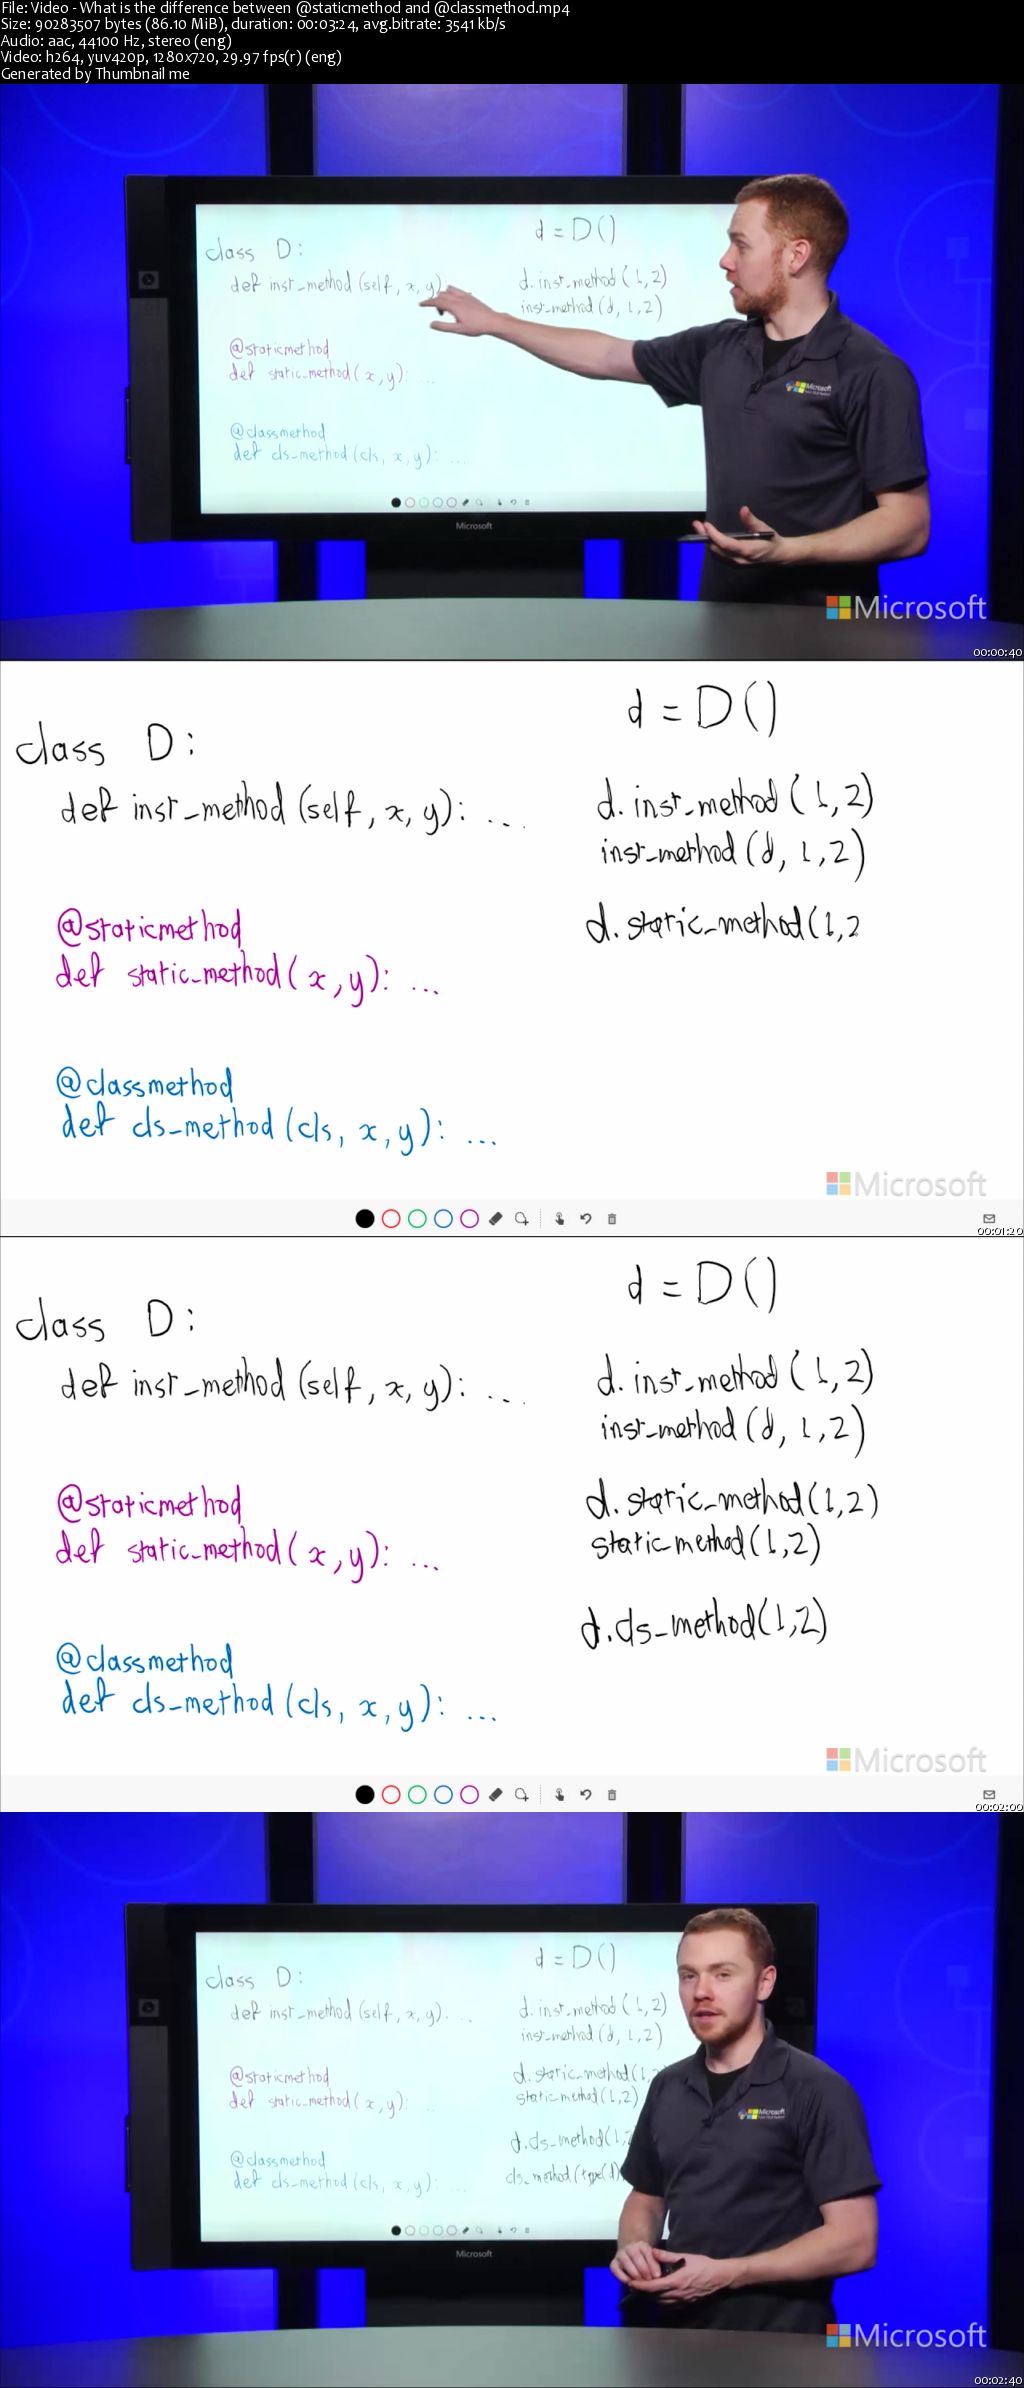 File: Video - What is the difference between @staticmethod and @classmethod.mp4
Size: 90283507 bytes (86.10 MiB), duration: 00:03:24, avg.bitrate: 3541 kb/s
Audio: aac, 44100 Hz, stereo (eng)
Video: h264, yuv420p, 1280x720, 29.97 fps(r) (eng)
Generated by Thumbnail me
d = D()
class D:
def inst_method (self, x, y)
d.inst_method (1,2)
inst_method (d, 1,2)
@staticmethod
def static_method (x, y): ...
@classmethod
def cls_method (cls, x, y): ...
Microsoft
Microsoft
Microsoft
00:00:40
d = D()
class D:
def inst_method (self, x, y): ...
d. inst_method (1,2)
inst_method (d, 1,2)
@staticmethod
def static_method (x, y): ...
d. static_method (1,2
@classmethod
def cls_method (cls, x, y): ...
Microsoft
00:01:20
d = D()
class D:
def inst_method (self, x, y): ...
d. inst_method (1,2)
inst_method (d, 1,2)
@staticmethod
def static_method (x, y): ...
d. static_method (1,2)
static_method (1,2)
@classmethod
def cls_method (cls, x, y): ...
d.cls_method(1,2)
Microsoft
00:02:00
d = D()
class D:
def inst_method (self, x, y): ...
d.inst_method (1,2)
inst_method (d, 1,2)
@staticmethod
def static_method (x, y): ...
d. static_method(1,2
static_method (1,2)
@classmethod
def cls_method (cls, x, y): ...
d.cls_method(1,2
cls_method (type(d)
Microsoft
Microsoft
Microsoft
00:02:40